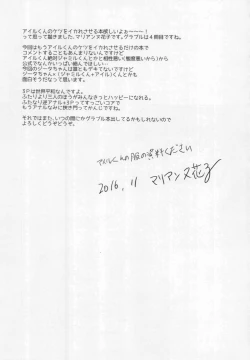 アイルくんのケツをイカれさせる本欲しいよぉーーー！
って思って書きました。マリアンヌ花子です。グラブルは４冊目ですね。
今回はもうアイルくんのケツをイカれさせるだけの本で
コメントすることもあんまりないんですけど
アイルくん絶対ジャミルくんとかと相性悪い（態度悪いから）から
公式でなんかいっぱい絡んでほしい…。
今回のジータちゃんは誰ともデキてないですけど
ジータちゃん×（ジャミルくん＋アイル）くんとかも
面白そうだなって思います。
３Ｐは世界平和なんですよ。
ふたりより三人のほうがみんなきっとハッピーになれる。
ふたなり逆アナル＋３Ｐってすっごいコアで
もうアナルなみに狭き門ってかんじに…。
それではまた、いつの間にかグラブル本出してるかもしれないので
よろしくどうぞどうぞ。
アイルくんの服の資料ください
2016.11 マリアンヌ花子